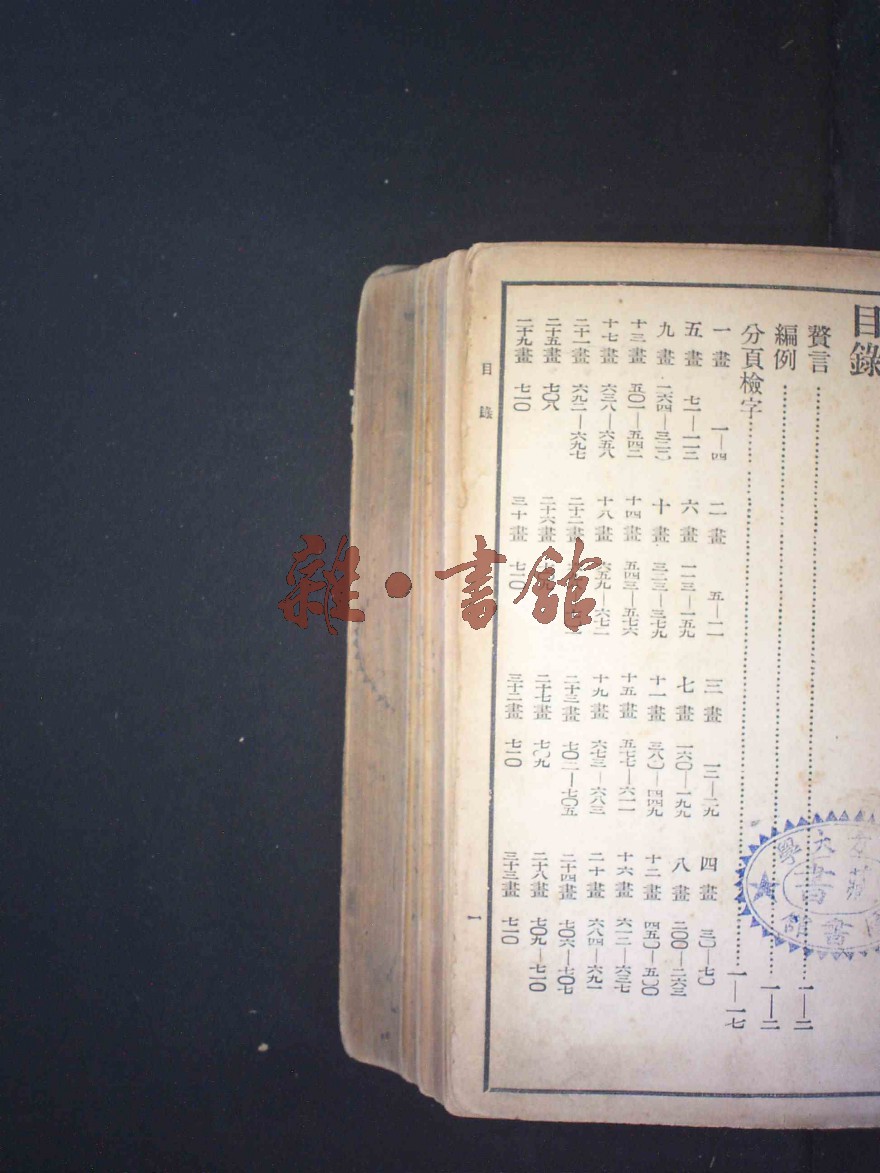 目錄
贅言 一—二
編例 一—二
分頁檢字 一—一七
一畫 一—四 二畫 五—一一 三畫 一二—二九 四畫 三〇—七〇
五畫 七一—一一二 六畫 一一三—一五九 七畫 一六〇—一九九 八畫 二〇〇—二六三
九畫 二六四—三二二 十畫 三二三—三七九 十一畫 三八〇—四四九 十二畫 四五〇—五〇〇
十三畫 五〇一—五四二 十四畫 五四三—五七六 十五畫 五七七—六一一 十六畫 六一二—六三七
十七畫 六三八—六五八 十八畫 六五九—六七二 十九畫 六七三—六八三 二十畫 六八四—六九一
二十一畫 六九二—六九七 二十二畫 二十三畫 七〇二—七〇五 二十四畫 七〇六—七〇七
二十五畫 七〇八 二十六畫 二十七畫 七〇九 二十八畫 七〇九—七一〇
二十九畫 七一〇 三十畫 七一〇 三十二畫 七一〇 三十三畫 七一〇
目錄 一
雜·書館